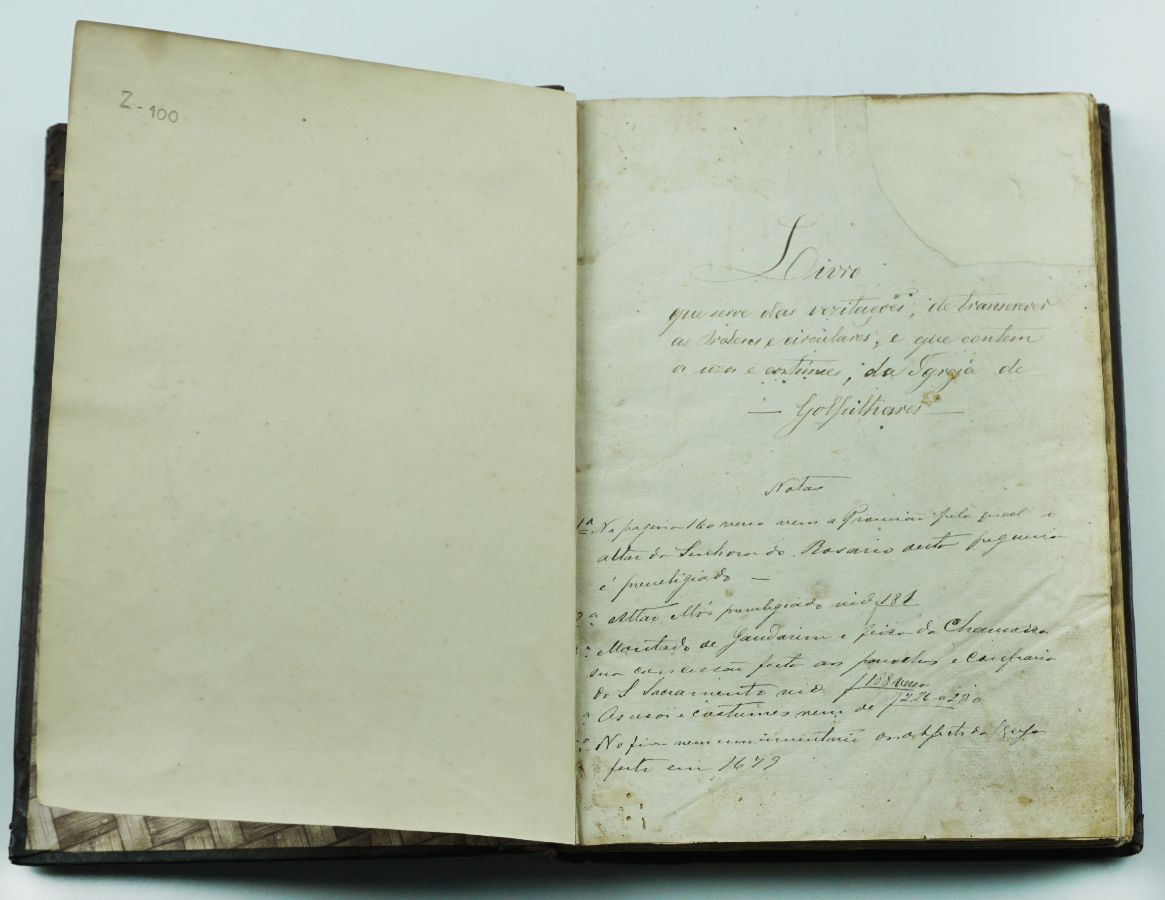 Z-100
Livro
que serve das vezitações, de transcrever
as Ordens e circulares, e que contem
os uzos e costumes, da Igreja de
— Golfilhares —
Notas
1ª Na pagina 160 verso vem a Provisão pela qual o
altar da Senhora do Rosario desta freguezia
é previligiado —
2ª Altar Mór previligiado vid f 181
Montado de Gandarim e feira da
sua concessão feita aos parochos e Confraria
do S. Sacramento vid. f 168 verso
Os usos e costumes vem de f 226 a 230
No fim vem um inventario dos da Igreja
feito em 1679